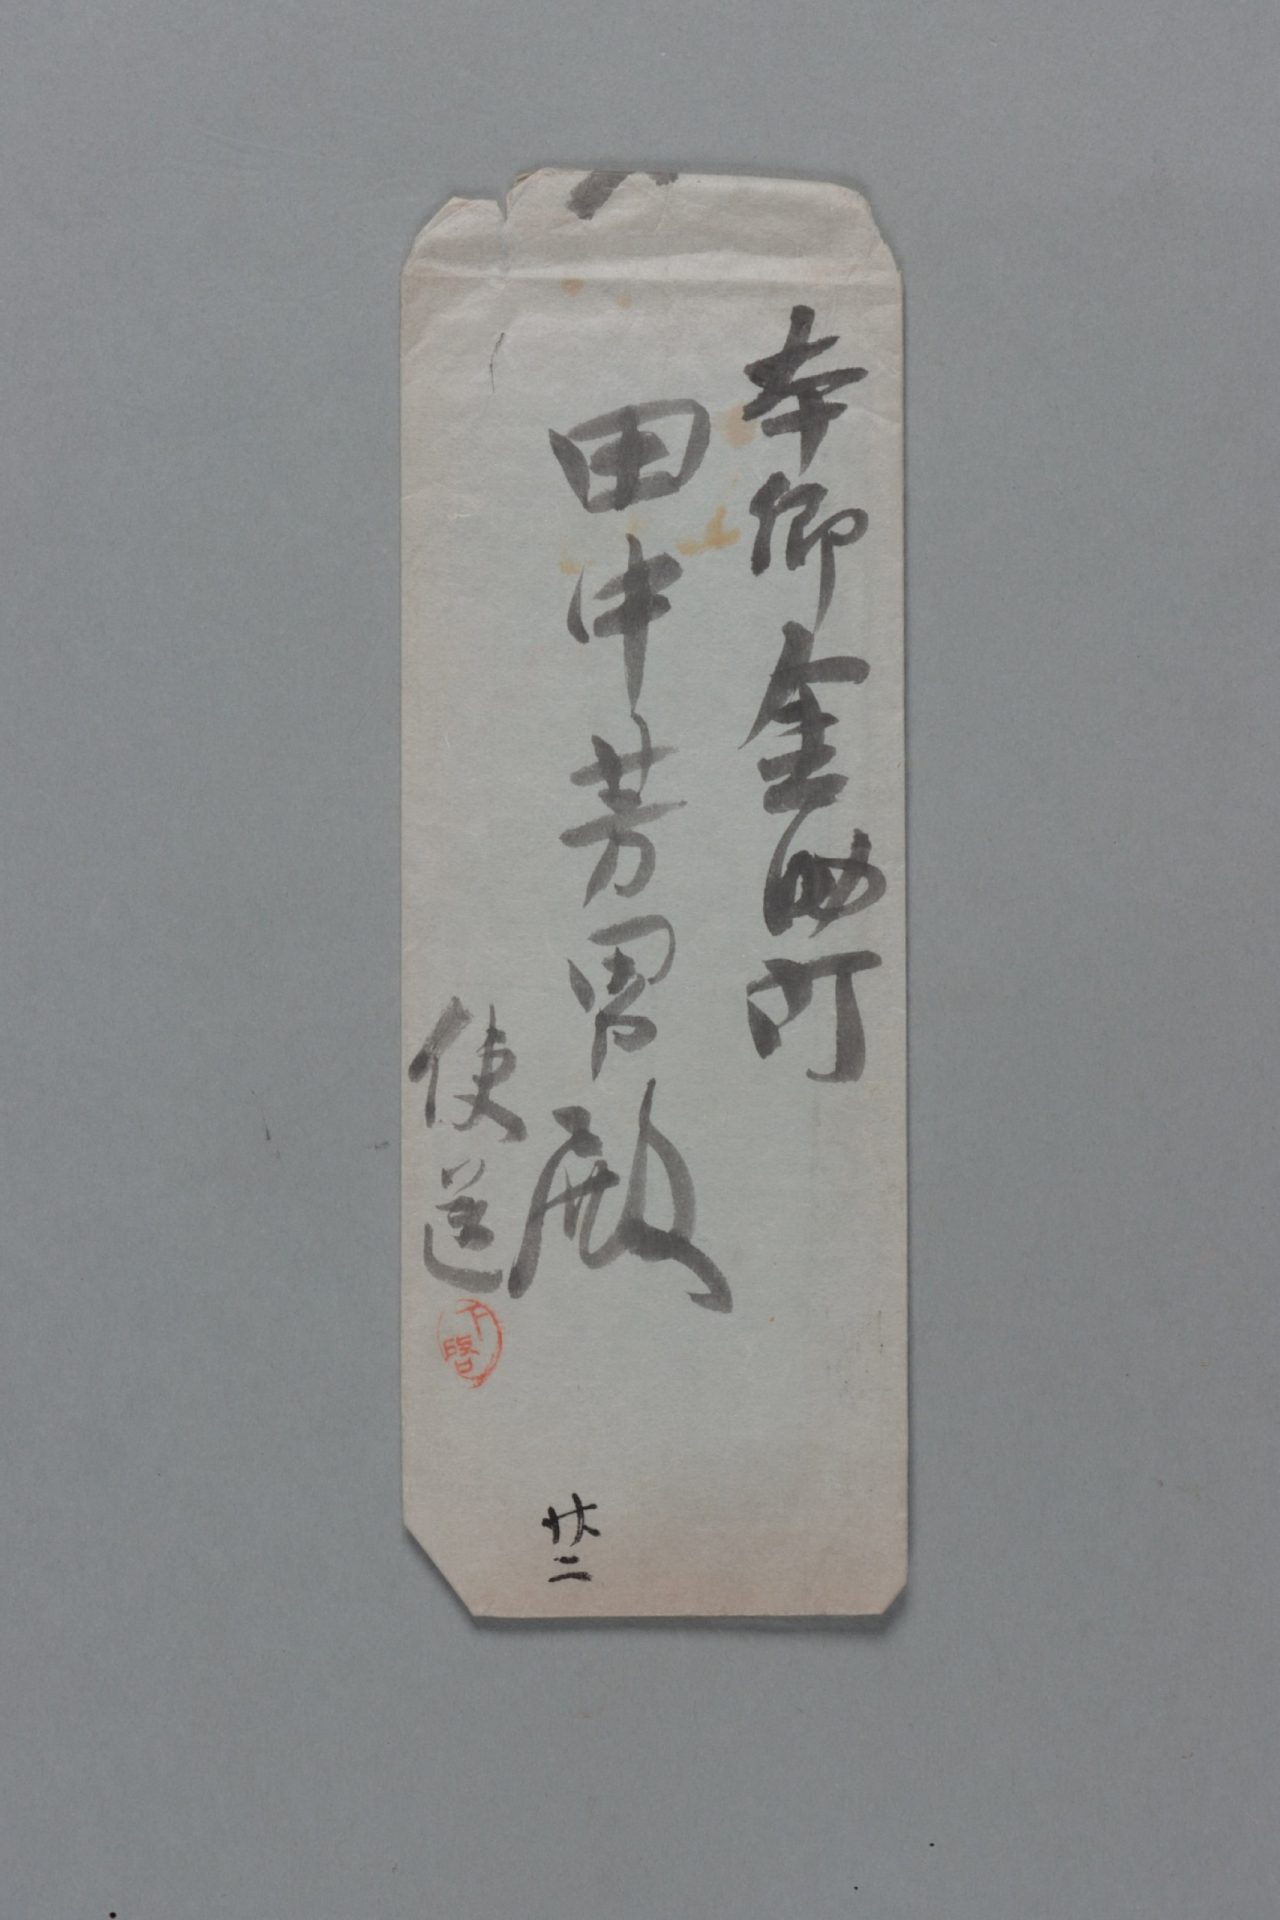 本郷金助町
田中芳男殿
使送
下啓
廿二